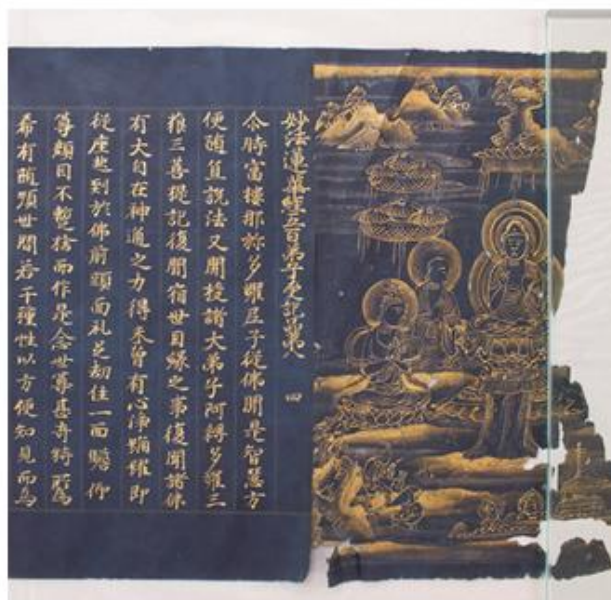 妙法蓮華經五百弟子受記品第八 四
尒時富樓那弥多羅尼子從佛聞是智慧方
便隨宜說法又聞授諸大弟子阿耨多羅三
藐三菩提記復聞宿世因緣之事復聞諸佛
有大自在神通之力得未曾有心淨踊躍即
從座起到於佛前頭面礼足却住一面瞻仰
尊顏目不暫捨而作是念世尊甚奇特所為
希有隨順世間若干種性以方便知見而為